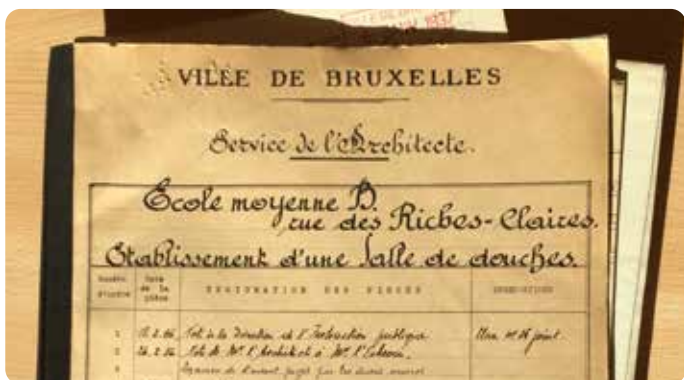 VILLE DE BRUXELLES
Service de l'Architecte.
École moyenne B.
rue des Riches-Claires.
Établissement d'une Salle de douches.
Numéro d'ordre
Date de la pièce
DÉSIGNATION DES PIÈCES
OBSERVATIONS
1 Note à la Direction de l'Instruction publique
2 Note de Mr l'Architecte à Mr l'Echevin.
3